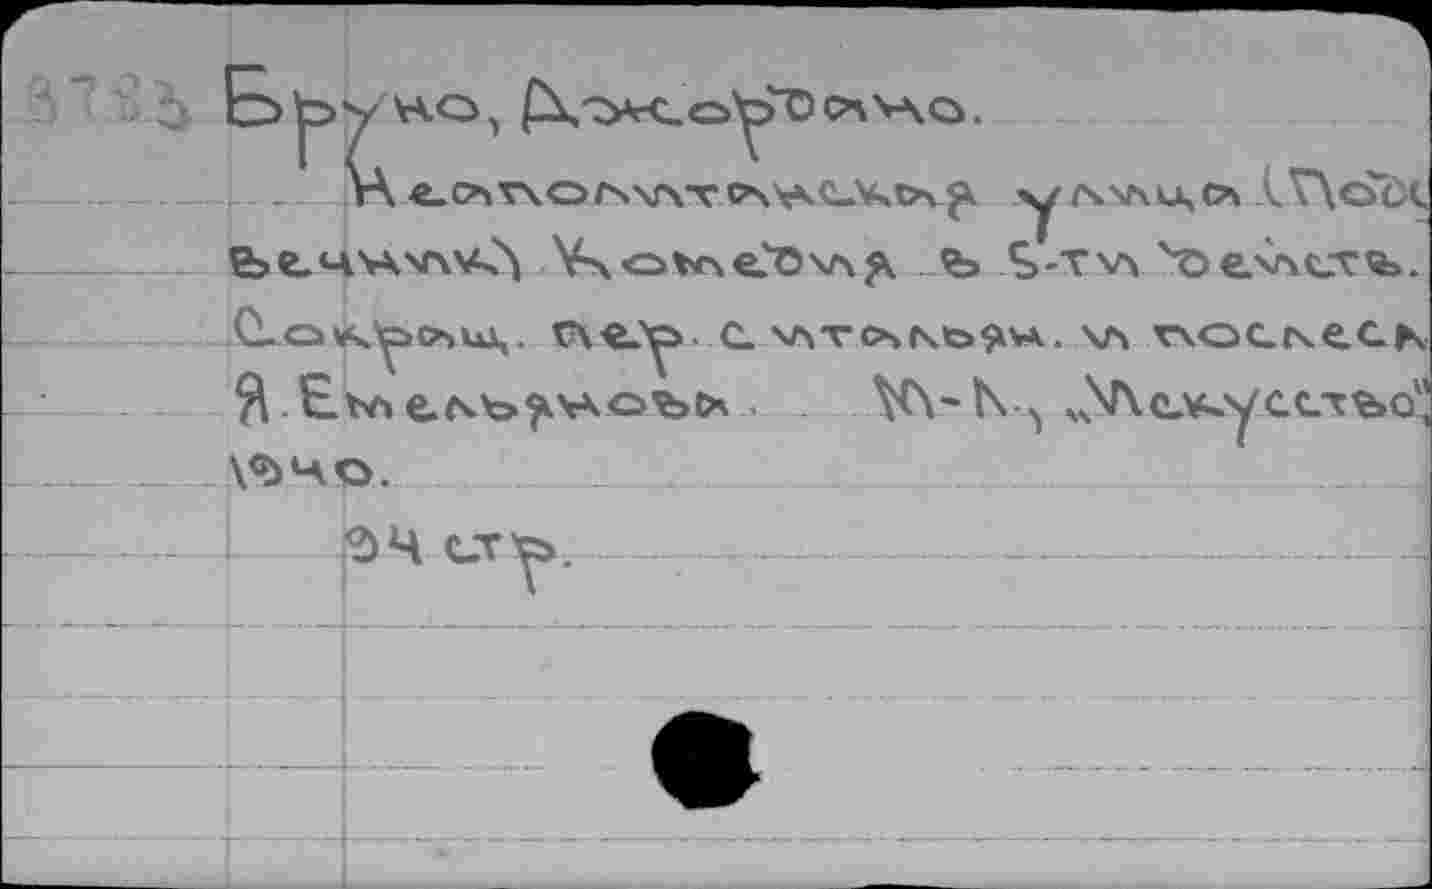 Бруно, Джордано.
Неополитанская улица. [Подс
вечник] Комедия в 5-ти действ.
Сокращ. пер. с итальян. и послесл.
Я. Емельянова. М-Л, „Искусство",
1940.
94 стр.